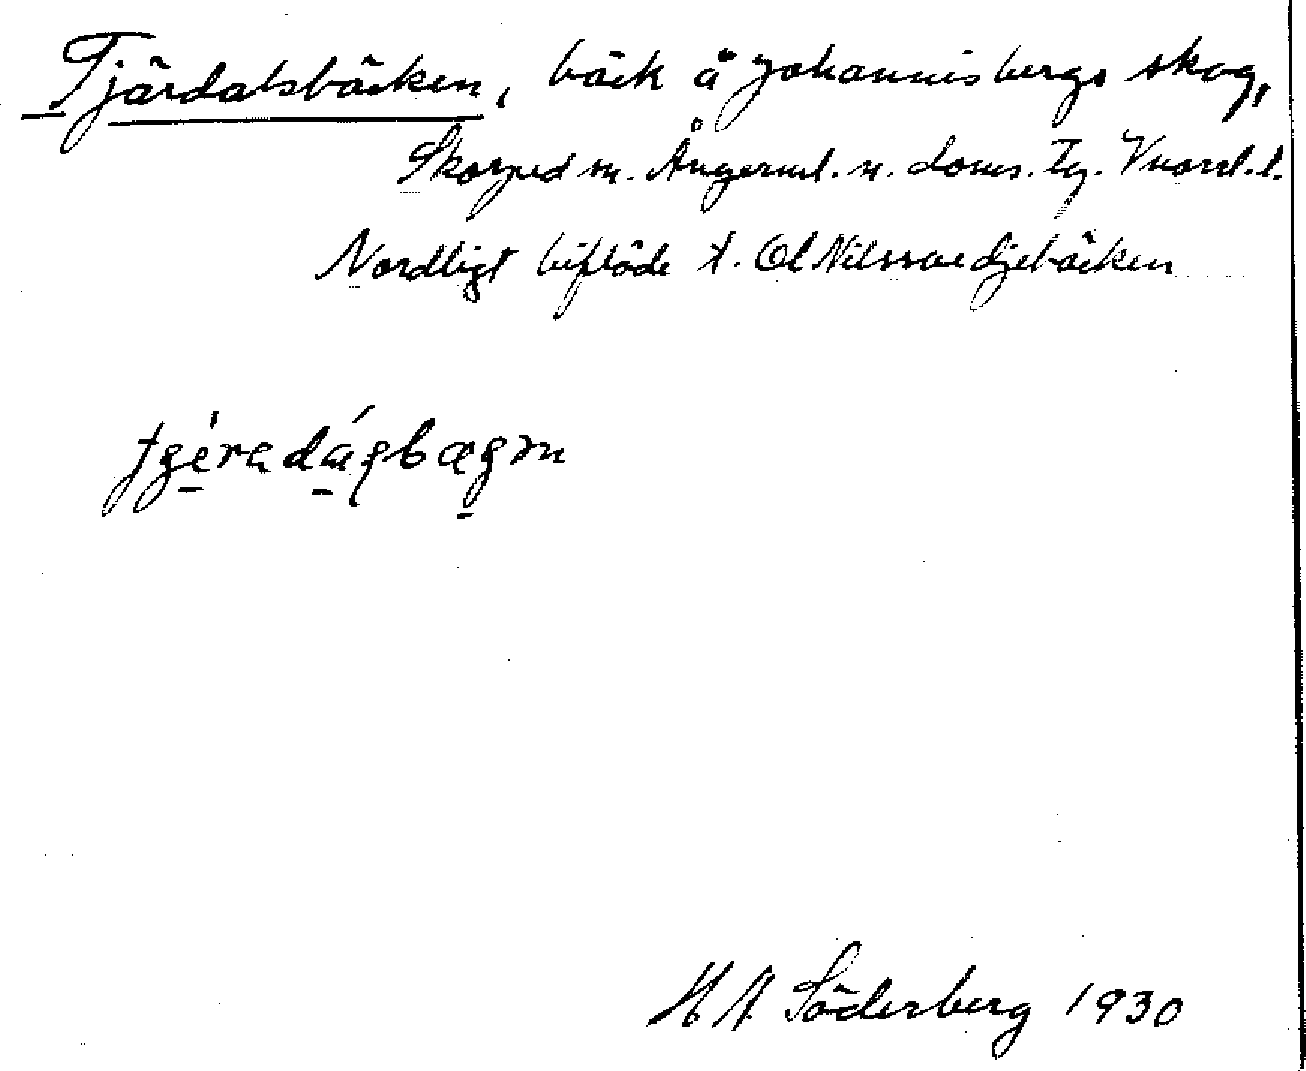 Tjärdalsbäcken, bäck å Johannisbergs skog,
Skorped sn. Ångerml. n. doms. tg. Vnorrl. l.
Nordligt biflöde t. Ol Nilssvedjebäcken
H A Söderberg 1930